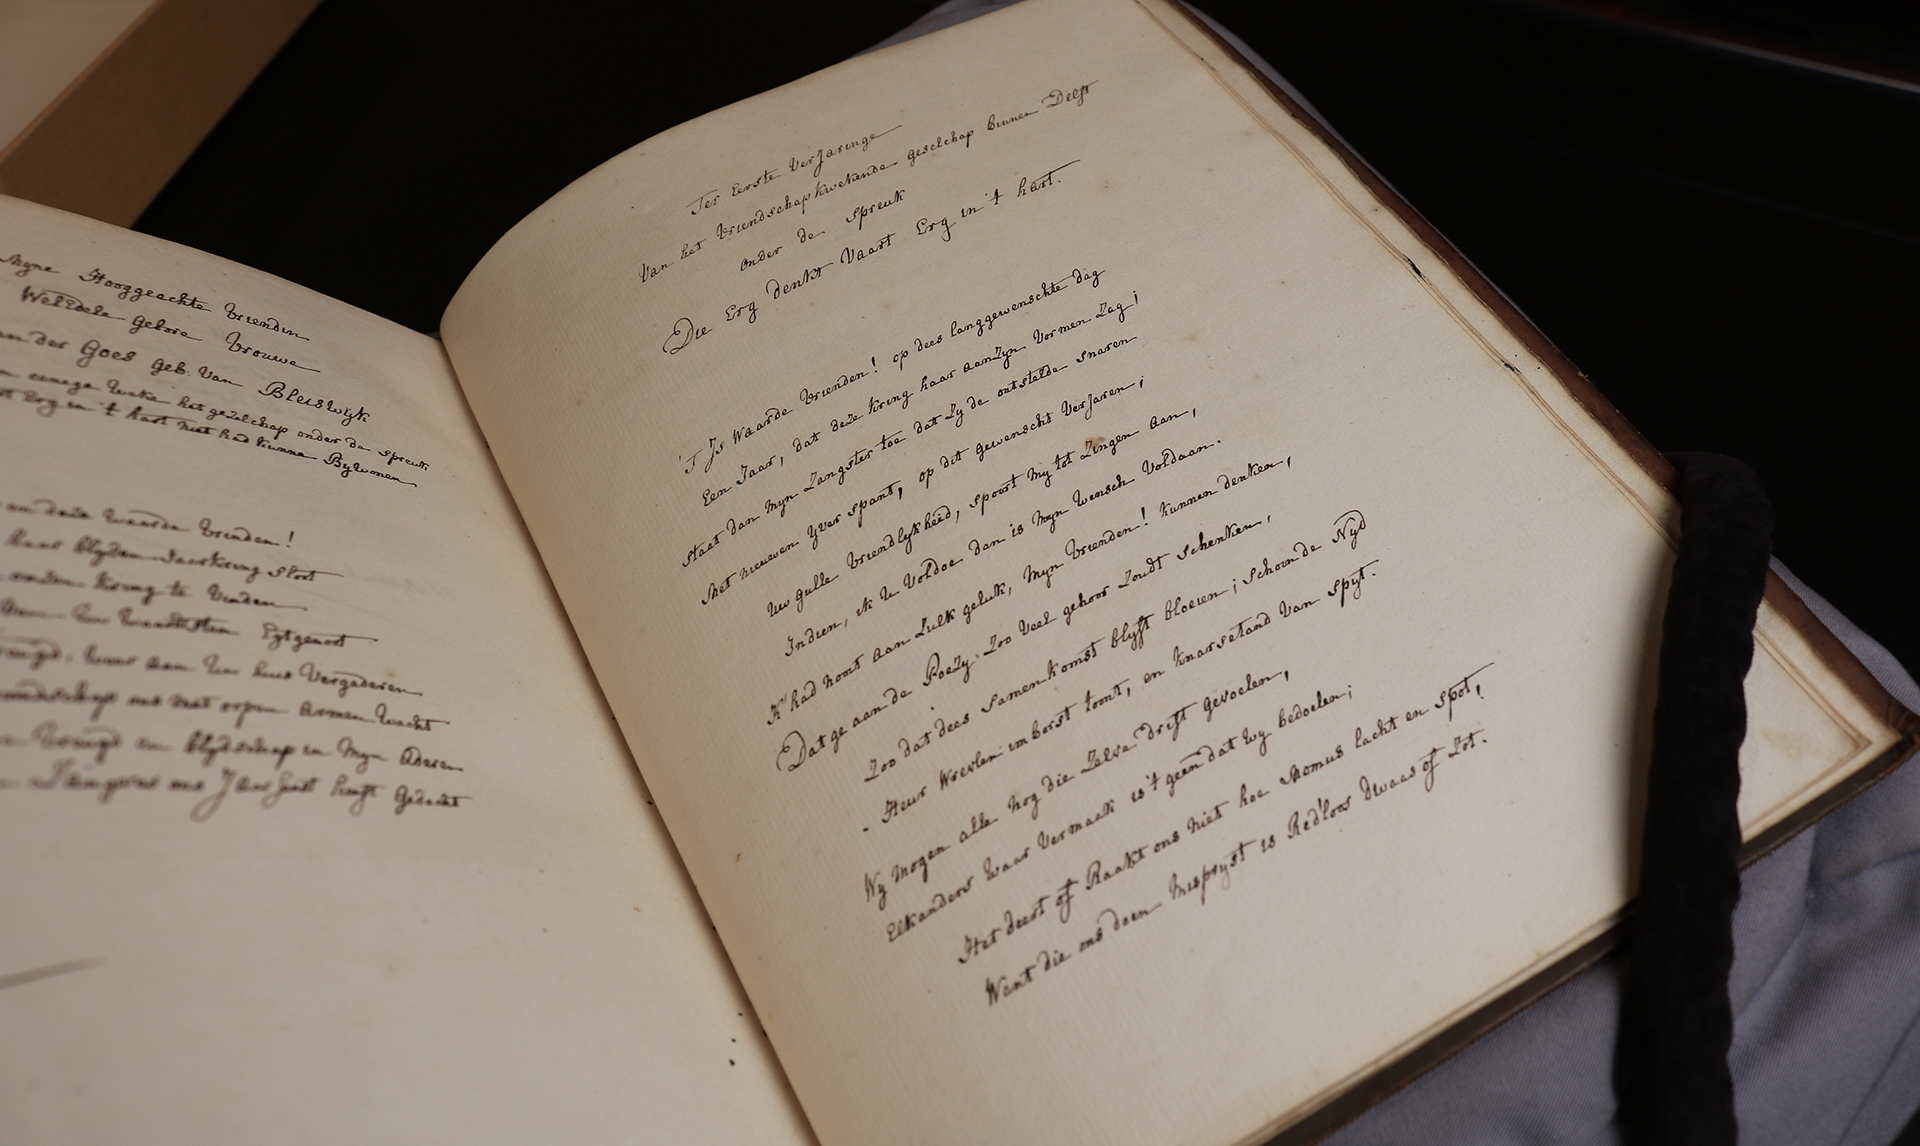 Myne Hooggeachte Vriendin
WelEdele gebore Vrouwe
van der Goes geb. van Bleiswijk
eenege weke het gezelschap onder de spreuk
Erg in 't hart niet had kunne Bywonen
om deze waarde Vrinden!
haar blyden Jaarkring sloot
kring te Vinden
Uw waardsten Egtgenoot
waar aan Uw huis Vergaderen
ons met open armen wacht
Vreugd en blydschap in Mijn Aderen
ons Jaar feest heeft Gedacht
Ter Eerste VerJaringe
Van het Vriendschapkwekende geselchap binnen Delft
onder de spreuk
Die Erg denkt Vaart Erg in 't hart.
'T Is Waarde Vrienden! op dees langgewenschte dag
Een Jaar, dat deze kring haar aanzyn Vormen Zag;
staat dan Myn Zangster toe dat Zy de ontstelde snaren
Met nieuwen Yver spant, op dit gewenscht VerJaren;
Uw gulle Vriendlykheid, spoort My tot Zingen aan,
Indien, ik U Voldoe dan is Myn Wensch Voldaan.
K' had nooit aan Zulk geluk, Myn Vrienden! kunnen denken,
Dat ge aan de Poëzy Zoo Veel gehoor Zoudt schenken,
Zoo dat dees samenkomst blyft bloeien; schoon de Nyd
Heur Wrevlen imborst toont, en knarsetand Van spyt.
Wy Mogen alle nog die Zelve drift gevoelen,
Elkanders waar Vermaak is 't geen dat wy bedoelen;
Het deert of Raakt ons niet hoe Momus lacht en spot,
Want die ons doen Mispryst is Red'loos dwaas of Zot.